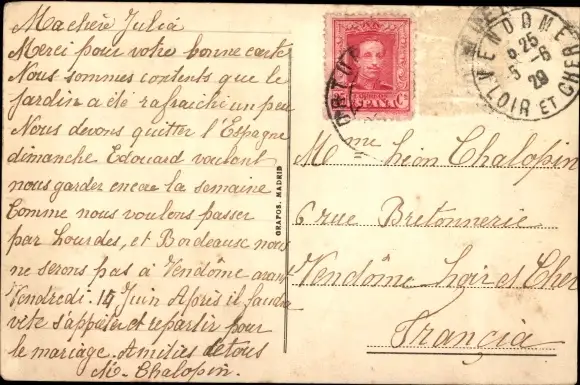 Ma chère Julia
Merci pour votre bonne carte
Nous sommes contents que le
jardin a été rafraichi un peu
Nous devons quitter l'Espagne
dimanche Edouard voulant
nous garder encore la semaine
Comme nous voulons passer
par Lourdes, et Bordeause nous
ne serons pas à Vendôme avant
Vendredi 14 Juin Après il faudra
vite s'appreter et repartir pour
le mariage. Amitiés de tous
M. Chalopin.
GRAFOS. MADRID
ESPAÑA
VENDOME
8 25
5 - 6
29
LOIR ET CHER
Mme Léon Chalopin
6 rue Bretonnerie
Vendôme Loir et Cher
Francia